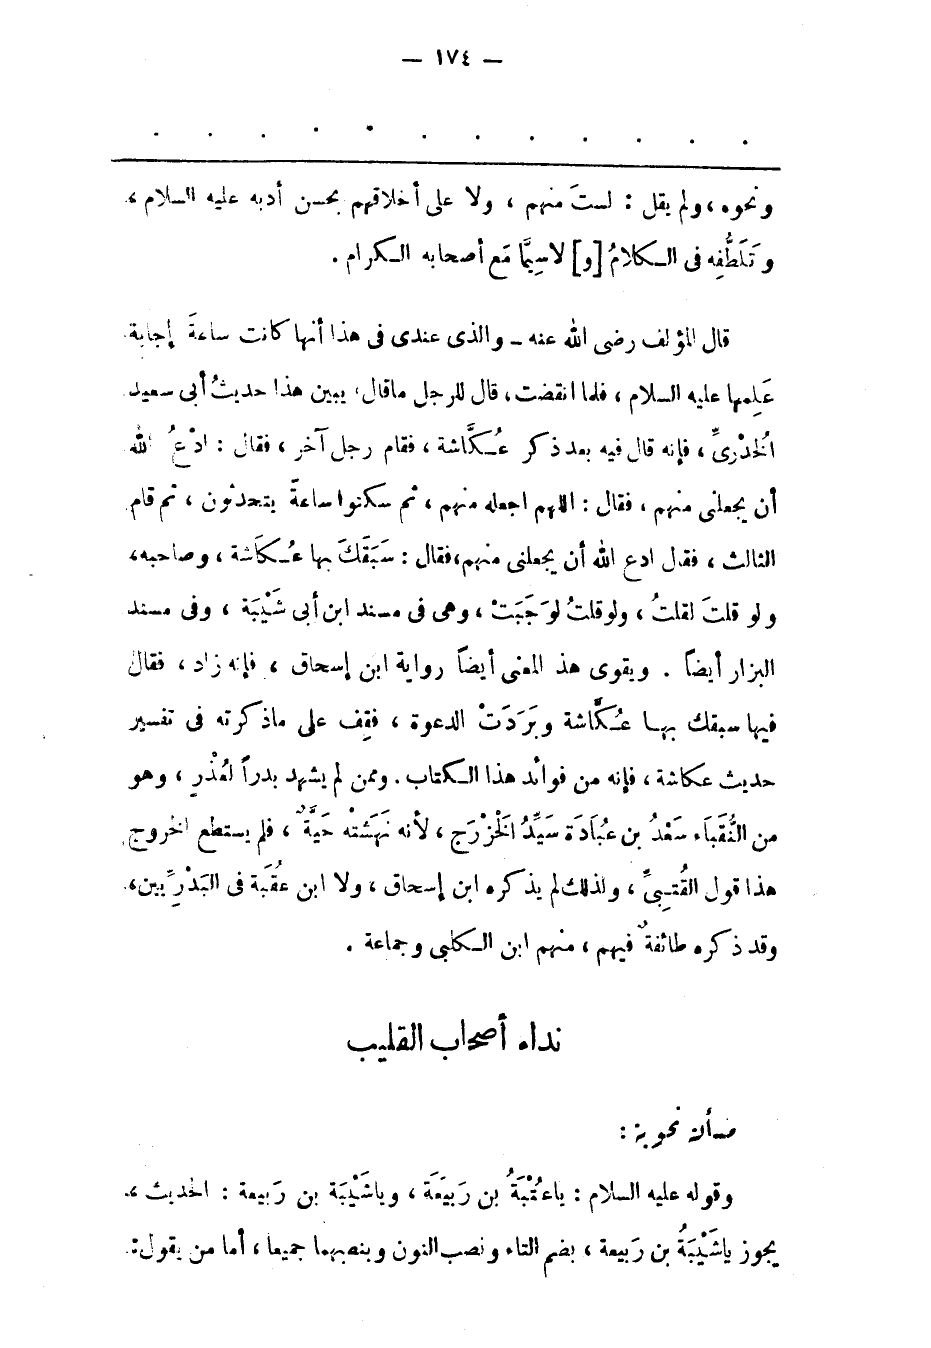 — ١٧٤ —
. . . . . . . . . . . .
ونحوه ، ولم يقل : لستَ منهم ، ولا على أخلاقهم بحسن أدبه عليه السلام ،
وتَلَطُّفِه فى الـكلامُ [و] لاسِيَّما مَع أصحابه الـكرام .
قال المؤلف رضى الله عنه ـ والذى عندى فى هذا أنها كانت ساعةَ إجابة
عَلِمها عليه السلام ، فلما انقضت ، قال للرجل ماقال ، يبين هذا حديثُ أبى سعيد
الْخُدْرِىِّ ، فإنه قال فيه بعد ذكر عُـكَّاشة ، فقام رجل آخر ، فقال : ادْعُ الله
أن يجعلنى منهم ، فقال : اللهم اجعله منهم ، ثم سكنوا ساعةً يتحدثون ، ثم قام
الثالث ، فقال ادع الله أن يجعلنى منهم ، فقال : سَبَقَكَ بها عُـكَاشة ، وصاحبه ،
ولو قلتَ لقلتُ ، ولو قلتُ لوَجَبَتْ ، وهى فى مسند ابن أبى شَيْبَة ، وفى مسند
البزار أيضاً . ويقوى هذ المعنى أيضاً رواية ابن إسحاق ، فإنه زاد ، فقال
فيها سبقك بهـا عُـكَّاشة وبَرَدَتْ الدعوة ، فقِف على ماذكرته فى تفسير
حديث عكاشة ، فإنه من فوائد هذا الـكتاب . وممن لم يشهد بدراً لعُذْرٍ ، وهو
من النُّقَبَاء سَعْدُ بن عُبَادَة سَيِّدُ الْخَزْرَج ، لأنه نَهَشَتْه حَيَّةٌ ، فلم يستطع الخروج
هذا قول القُتَـبِىِّ ، ولذلك لم يذكره ابن إسحاق ، ولا ابن عُقْبَة فى البَدْرِيِّين ،
وقد ذكره طائفةٌ فيهم ، منهم ابن الـكلبى وجماعة .
نداء أصحاب القليب
مسألة نحوية :
وقوله عليه السلام : ياعُتْبَةُ بن رَبِيعَة ، وياشَيْبَة بن رَبيعة : الحديث .
يجوز ياشَيْبَةُ بن رَبيعة ، بضم التاء ونصب النون وبنصبهما جميعا ، أما من يقول :